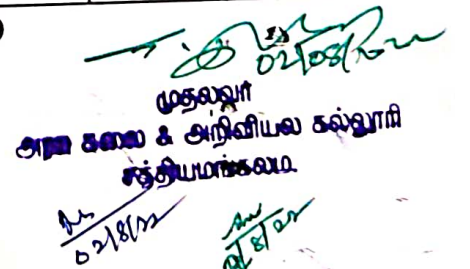 02/08/2022
முதல்வர்
அரசு கலை & அறிவியல் கல்லூரி
சத்தியமங்கலம்
02/8/22
2/8/22